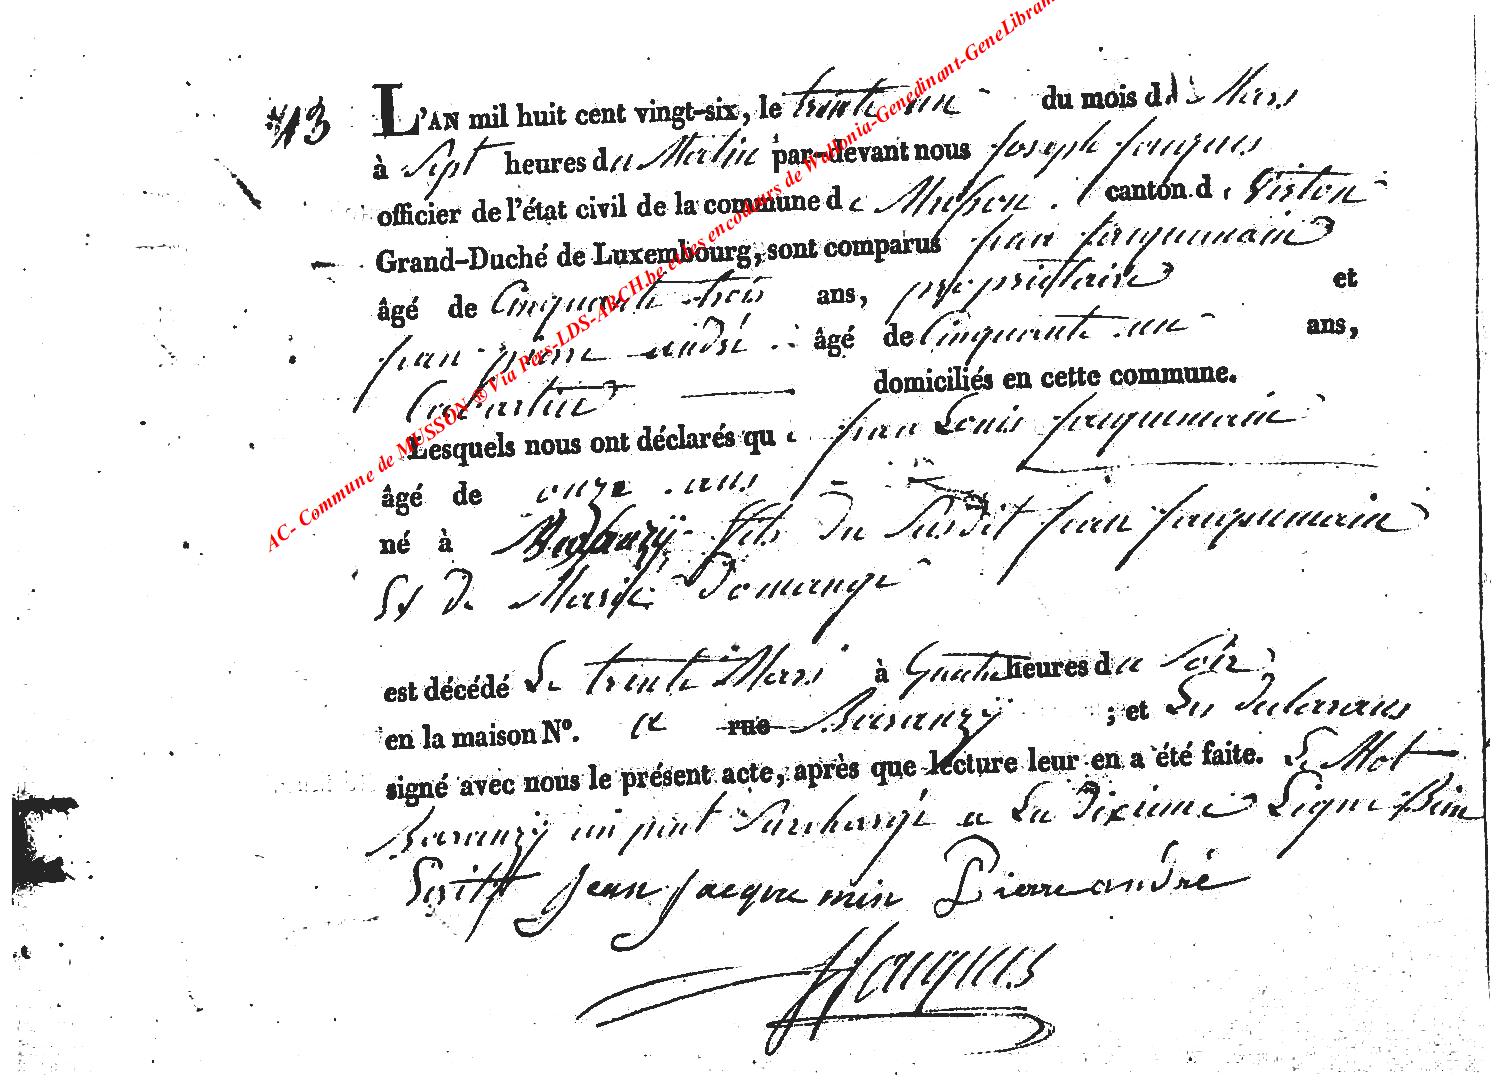 N° 13
L'AN mil huit cent vingt-six, le trente un du mois de Mars
à Sept heures du Matin par-devant nous Joseph Jacques
officier de l'état civil de la commune de Musson. canton de Virton
Grand-Duché de Luxembourg, sont comparus Jean Jacquemain
âgé de Cinquante trois ans, propriétaire et
Jean pierre andré âgé de Cinquante un ans,
domiciliés en cette commune.
Lesquels nous ont déclarés que Jean Louis Jacquemain
âgé de onze ans
né à Baranzÿ fils du Susdit Jean Jacquemain
Et De Marie Domange
est décédé Le trente Mars à Quatre heures du Soir
en la maison N°. a rue Baranzÿ ; et Les Declarans
signé avec nous le présent acte, après que lecture leur en a été faite. Le Mot
Baranzÿ un peut Surchargé a La Dixieme Ligne Bien
Jean Jacque min Pierre andré
JJacques
AC- Commune de MUSSON ® Via Pers-LDS-ARCH.be et les encodeurs de Wallonia-Genedinant-GeneLibram